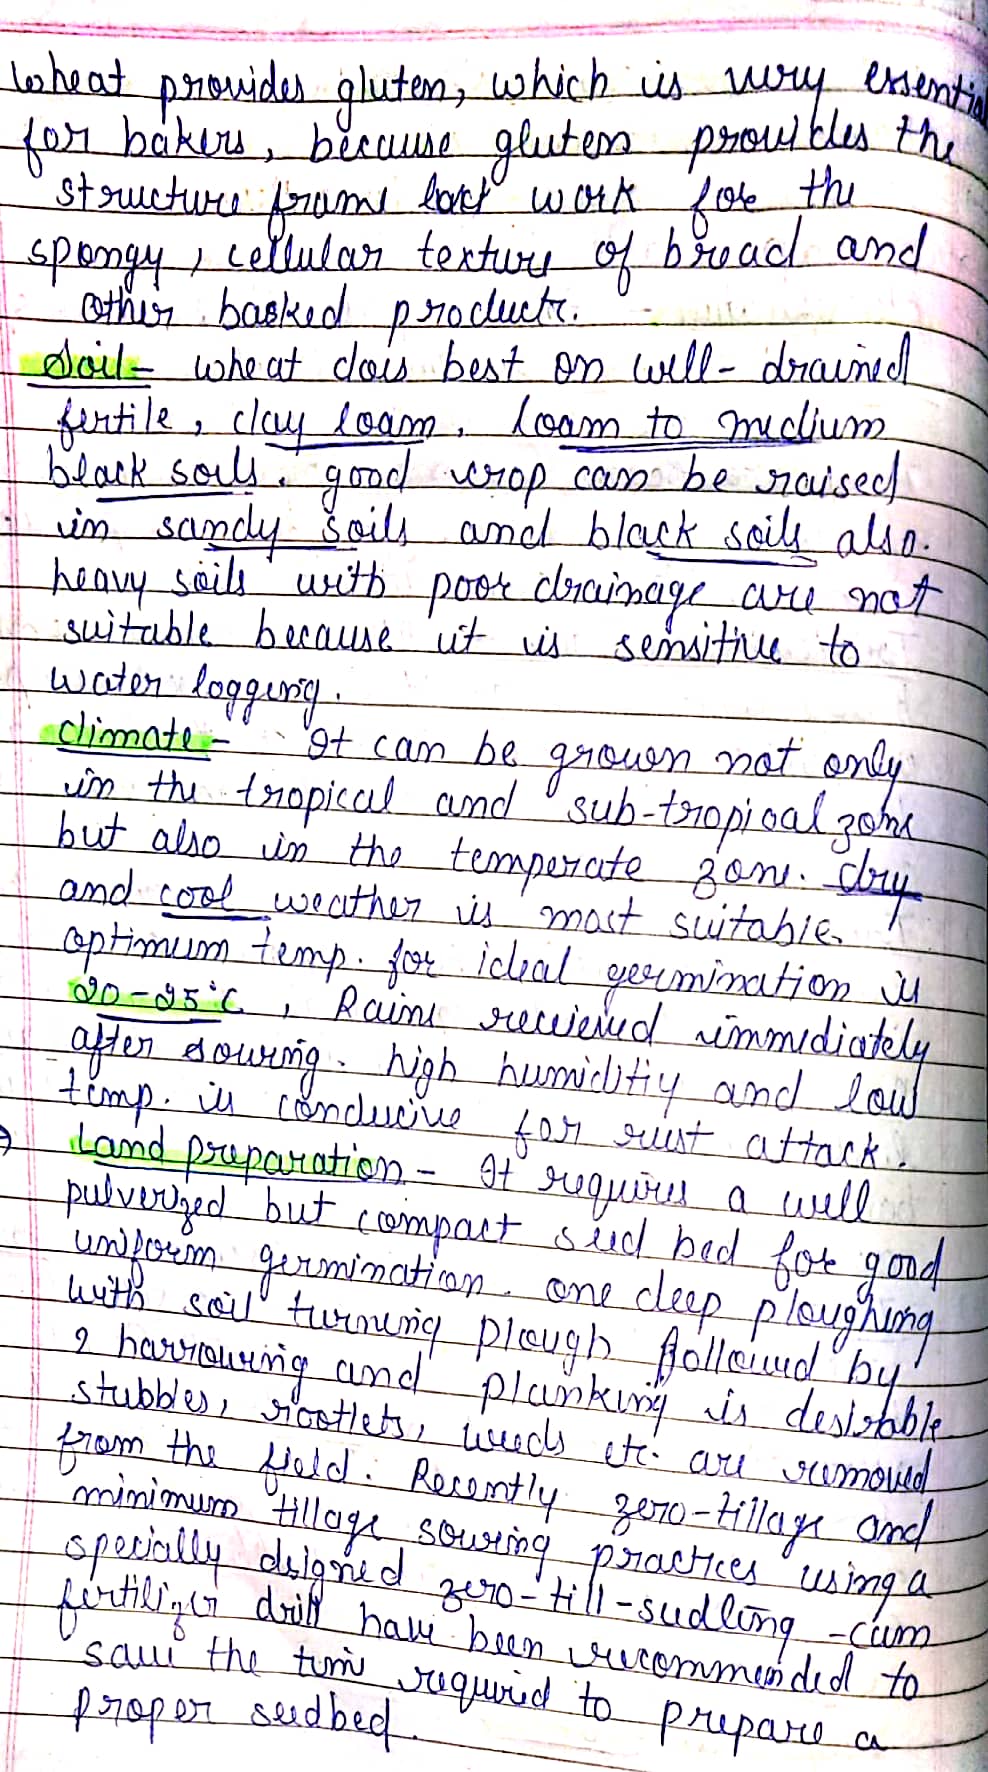 wheat provides gluten, which is very essential
for bakers, because gluten provides the
structure frame work for the
spongy, cellular texture of bread and
other basked products.
Soil- wheat does best on well-drained
fertile, clay loam, loam to medium
black soils. good crop can be raised
in sandy soils and black soils also.
heavy soils with poor drainage are not
suitable because it is sensitive to
water logging.
climate- It can be grown not only
in the tropical and sub-tropical zone
but also in the temperate zone. dry
and cool weather is most suitable.
optimum temp. for ideal germination is
20-25°C, Rains received immediately
after sowing. high humiditiy and low
temp. is conducive for rust attack.
→ Land preparation- It requires a well
pulverized but compact seed bed for good
uniform germination. one deep ploughing
with soil turning plough followed by
2 harrowing and planking is desirable
stubbles, rootlets, weeds etc. are removed
from the field. Recently zero-tillage and
minimum tillage sowing practices using a
specially deigned zero-till-sudling-cum
fertilizer drill have been recommended to
save the time required to prepare a
proper seedbed.